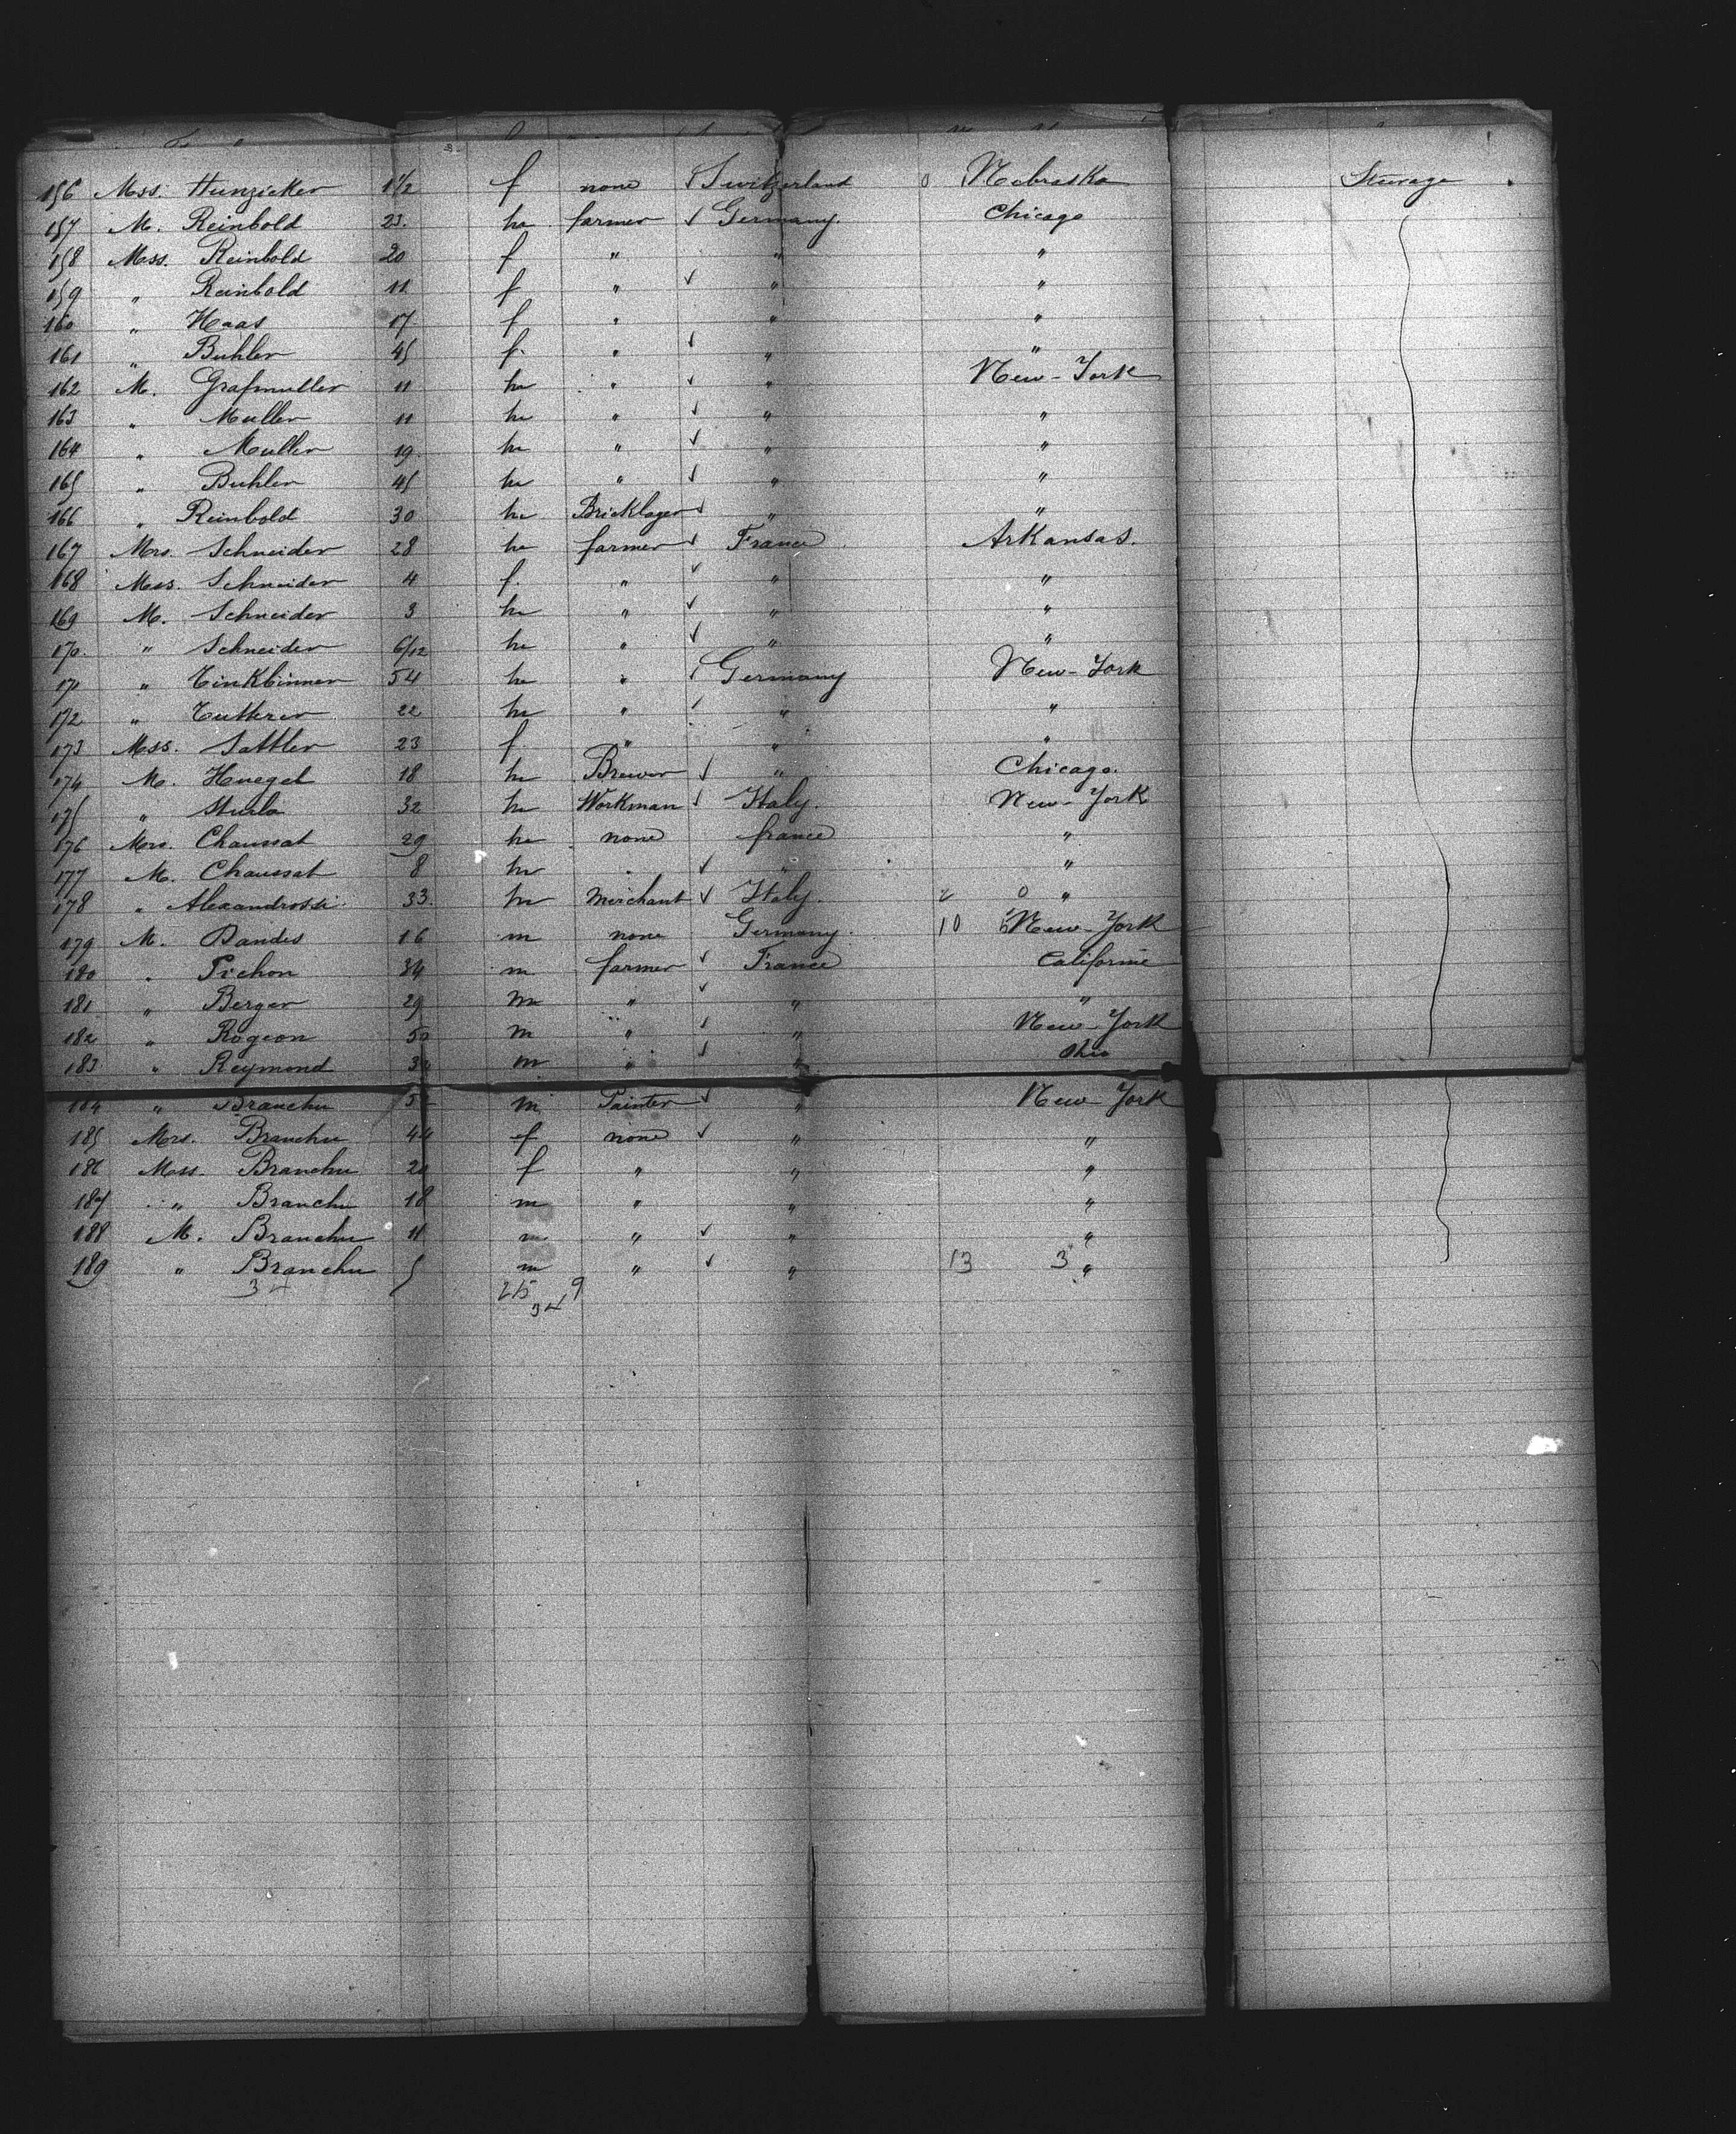 156 Mss. Hunzicker 1 1/2 f none Switzerland 0 Nebraska Sturage
157 M. Reinbold 23. m farmer Germany. Chicago
158 Mss. Reinbold 20 f " " "
159 " Reinbold 11 f " " "
160 " Haas 17 f " " "
161 " Buhler 45 f. " " "
162 M. Grafmuller 11 m " " New-York
163 " Muller 11 m " " "
164 " Muller 19 m " " "
165 " Buhler 45 m " " "
166 " Reinbold 30 m Bricklager " "
167 Mrs. Schneider 28 m farmer France Arkansas.
168 Mss. Schneider 4 f. " " "
169 M. Schneider 3 m " " "
170. " Schneider 6/12 m " " "
171 " 54 m " Germany New-York
172 " Tutterer 22 m " " "
173 Mss. Sattler 23 f. " " "
174 M. Huegel 18 m Brewer " Chicago.
175 " Sturla 32 m Workman Italy. New-York
176 Mrs. Chaussat 29 m none france "
177 M. Chaussat 8 m " " "
178 " Alexandrossi 33. m Merchant Italy. 2 0 "
179 M. Bandes 16 m none Germany. 10 New-York
180 " Pichon 34 m farmer France Californie
181 " Berger 29 m " " "
182 " Rogeon 50 m " " New-York
183 " Reymond m " " Ohio
184 " Branchu m Painter " New-York
185 Mrs. Branchu 44 f none " "
186 Mss. Branchu 20 f " " "
187 " Branchu 18 m " " "
188 M. Branchu 11 m " " "
189 " Branchu 5 m " " 13 3 "
34 25 9
34